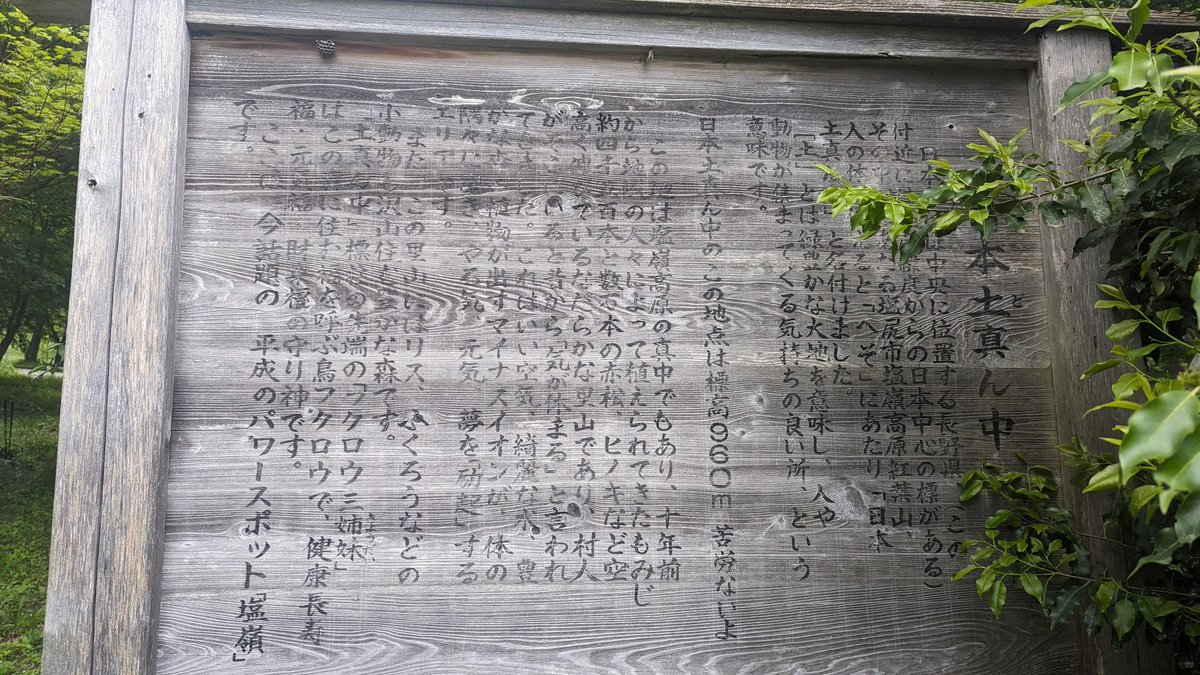 本土真ん中
ど
日 中央に位置する長野県(この
付近に 緯度からの日本中心の標がある)
その中 る塩尻市塩嶺高原紅葉山、
人の体 ると、へそにあたり「日本
土真 」と名付けました。
「土」とは緑豊かな大地を意味し、人や
動物が住まってくる気持ちの良い所、という
意味です。
日本土真ん中のこの地点は標高960m 苦労ないよ
この地は塩嶺高原の真中でもあり、十年前
から地域の人々によって植えられてきたもみじ
約四千五百本と数万本の赤松、ヒノキなど空
高く伸びているなだらかな里山であり、村人
がそこ いると昔から「気が休まる」と言われ
てきました。これはいい空気、綺麗な水、豊
かな森 植物が出すマイナスイオンが、体の
隅々に やる元 元気 夢を「励起」する
エリアです。
また、この里山にはリス、ふくろうなどの
小動物も沢山住む豊かな森です。
「土真ん中」と標柱の先端の「フクロウ三姉妹」
きょうだい
はこの森に住む福を呼ぶ鳥フクロウで、健康長寿
福・元気福・財義福の守り神です。
ここは、今話題の 平成のパワースポット「塩嶺」
です。